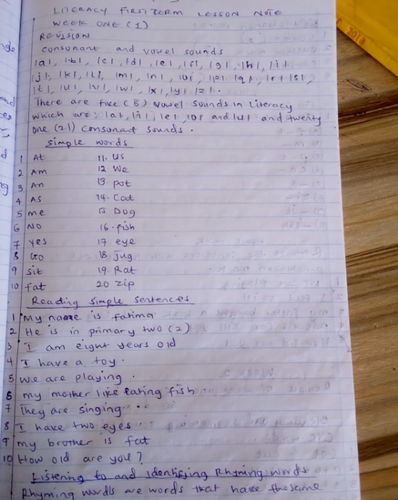 Literacy First Term Lesson Note
Week One (1)
Revision
Consonant and vowel sounds
|a|, |b|, |c|, |d|, |e|, |f|, |g|, |h|, |i|,
|j|, |k|, |l|, |m|, |n|, |o|, |p|, |q|, |r|, |s|,
|t|, |u|, |v|, |w|, |x|, |y|, |z|.
There are five (5) vowel sounds in Literacy
which are: |a|, |i|, |e|, |o| and |u| and twenty
one (21) consonant sounds.
Simple words
1 At 11. Us
2 Am 12 We
3 An 13. Pot
4 As 14. Cod
5 me 15 Dog
6 No 16. fish
7 yes 17 eye
8 Go 18. Jug
9 Sit 19. Rat
10 fat 20 Zip
Reading Simple Sentences
1 My name is fatima
2 He is in primary two (2)
3 I am eight years old
4 I have a toy.
5 We are playing.
6 my mother like eating fish.
7 They are singing.
8 I have two eyes
9 my brother is fat
10 How old are you?
Listening to and identifying Rhyming words
Rhyming words are words that have the same